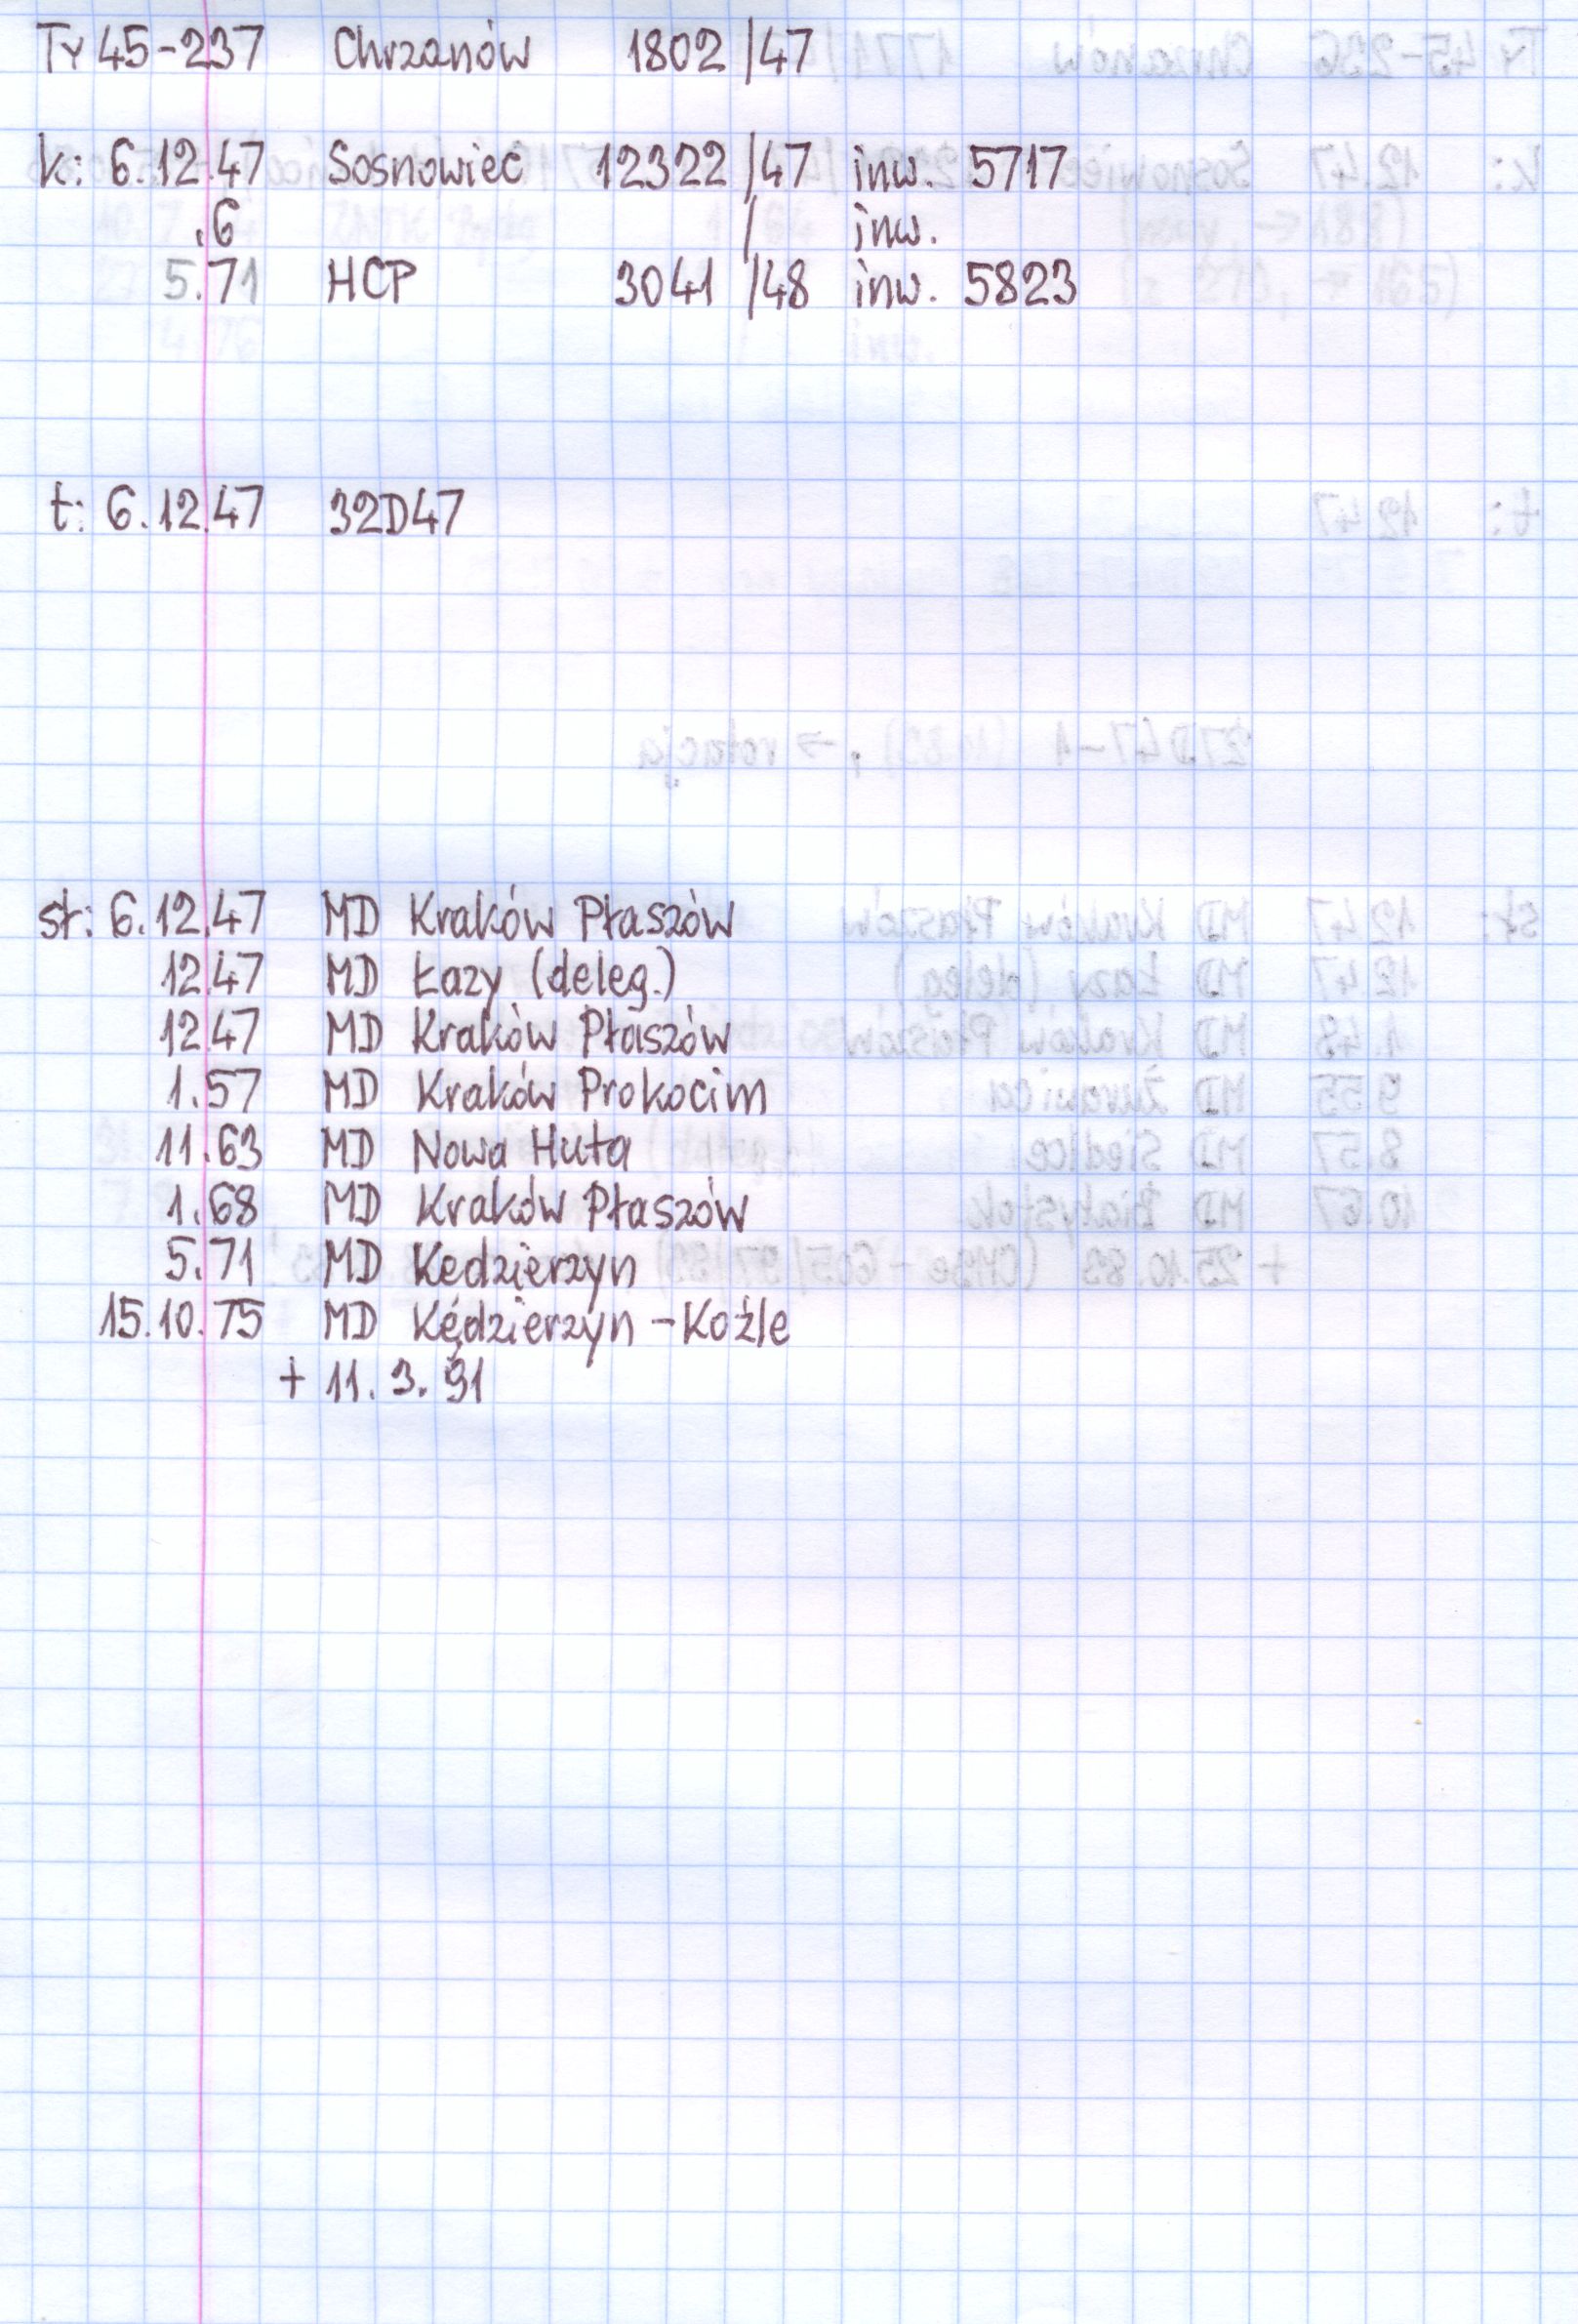 Ty 45-237 Chrzanów 1802 /47
k: 6.12.47 Sosnowiec 12322 /47 inw. 5717
.6 / inw.
5.71 HCP 3041 /48 inw. 5823
t: 6.12.47 32D47
st: 6.12.47 MD Kraków Płaszów
12.47 MD Łazy (deleg.)
12.47 MD Kraków Płaszów
1.57 MD Kraków Prokocim
11.63 MD Nowa Huta
1.68 MD Kraków Płaszów
5.71 MD Kędzierzyn
15.10.75 MD Kędzierzyn - Koźle
+ 11. 3. 91